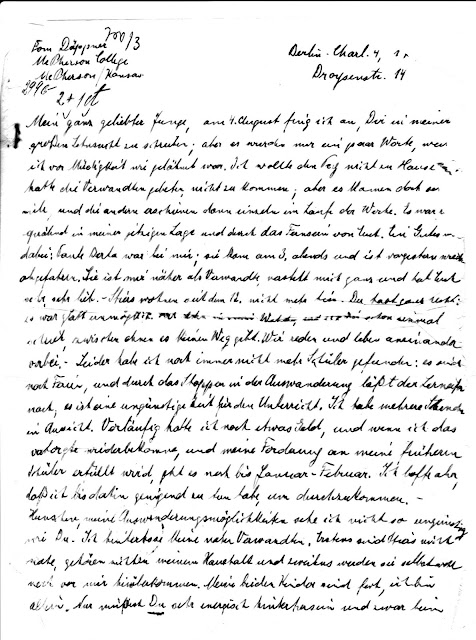 Tom Döppner
McPherson College
McPherson/Kansas
Berlin-Charl. 4,
Droysenstr. 14
Mein ganz geliebter Junge, am 4. August fing ich an, Dir in meiner
großen Sehnsucht zu schreiben; aber es wurden nur ein paar Worte, weil
ich vor Müdigkeit wie gelähmt war. Ich wollte den Tag nicht zu Hause
hatte die Verwandten gebeten nicht zu kommen; aber es kamen doch
und die andern erschienen dann einzeln im Laufe der Woche. Es war
quälend in meiner jetzigen Lage und durch das Fernsein von Euch. Ein Gutes
dabei: war bei mir; sie kam am 3. abends und ist vorgestern
abgefahren. Sie ist mir näher als Verwandte, versteht mich ganz und hat Euch
sehr lieb. - wohnen seit dem 12. nicht mehr hier. Du hast ganz recht;
es war glatt unmöglich einmal
zwischen ihnen es keinen Weg gibt. Wir reden und leben aneinander
vorbei. - Leider habe ich noch immer nicht mehr Schüler gefunden; es sind
noch Ferien, und durch das Stoppen in der Auswanderung läßt der Lerneifer
nach, es ist eine ungünstige Zeit für den Unterricht. Ich habe mehrere
in Aussicht. Vorläufig hatte ich noch etwas Geld, und wenn ich das
wiederbekomme, und meine Forderung an meine früheren
Schüler erfüllt wird, geht es noch bis Januar-Februar. Ich hoffe aber,
daß ich bis dahin genügend zu tun habe, um durchzukommen. -
meine Auswanderungsmöglichkeiten sehe ich nicht so ungünstig
wie Du. Ich hinterlasse keine nahen Verwandten. Erstens sind nicht
nahe, gehören nicht zu meinem Haushalt und zweitens werden sie selbst wohl
noch vor mir hinüberkommen. Meine beiden Kinder sind fort, ich bin
allein. Nur müßtest Du sehr energisch dahinter sein und zwar beim